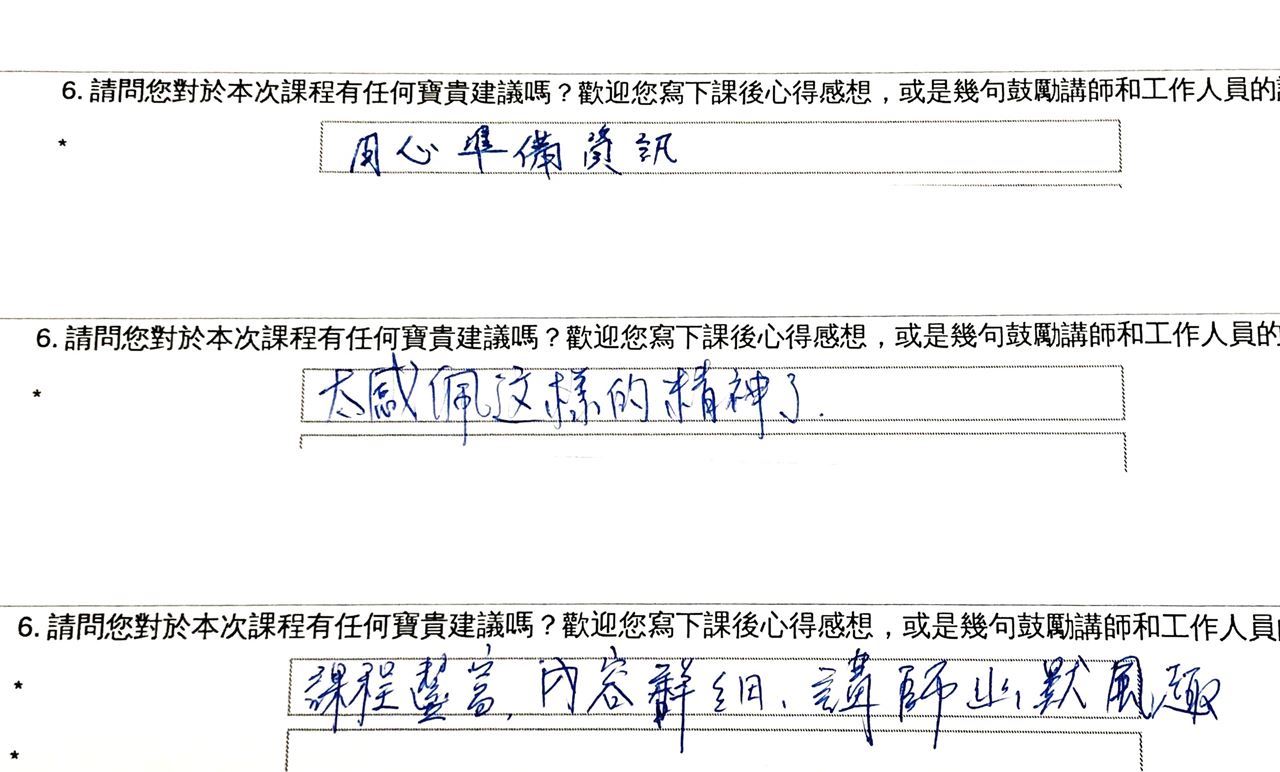 6. 請問您對於本次課程有任何寶貴建議嗎？歡迎您寫下課後心得感想，或是幾句鼓勵講師和工作人員的
*
用心準備資訊
6. 請問您對於本次課程有任何寶貴建議嗎？歡迎您寫下課後心得感想，或是幾句鼓勵講師和工作人員的
*
太感佩这樣的精神了.
6. 請問您對於本次課程有任何寶貴建議嗎？歡迎您寫下課後心得感想，或是幾句鼓勵講師和工作人員
*
課程豐富,內容詳細、講師幽默風趣
*